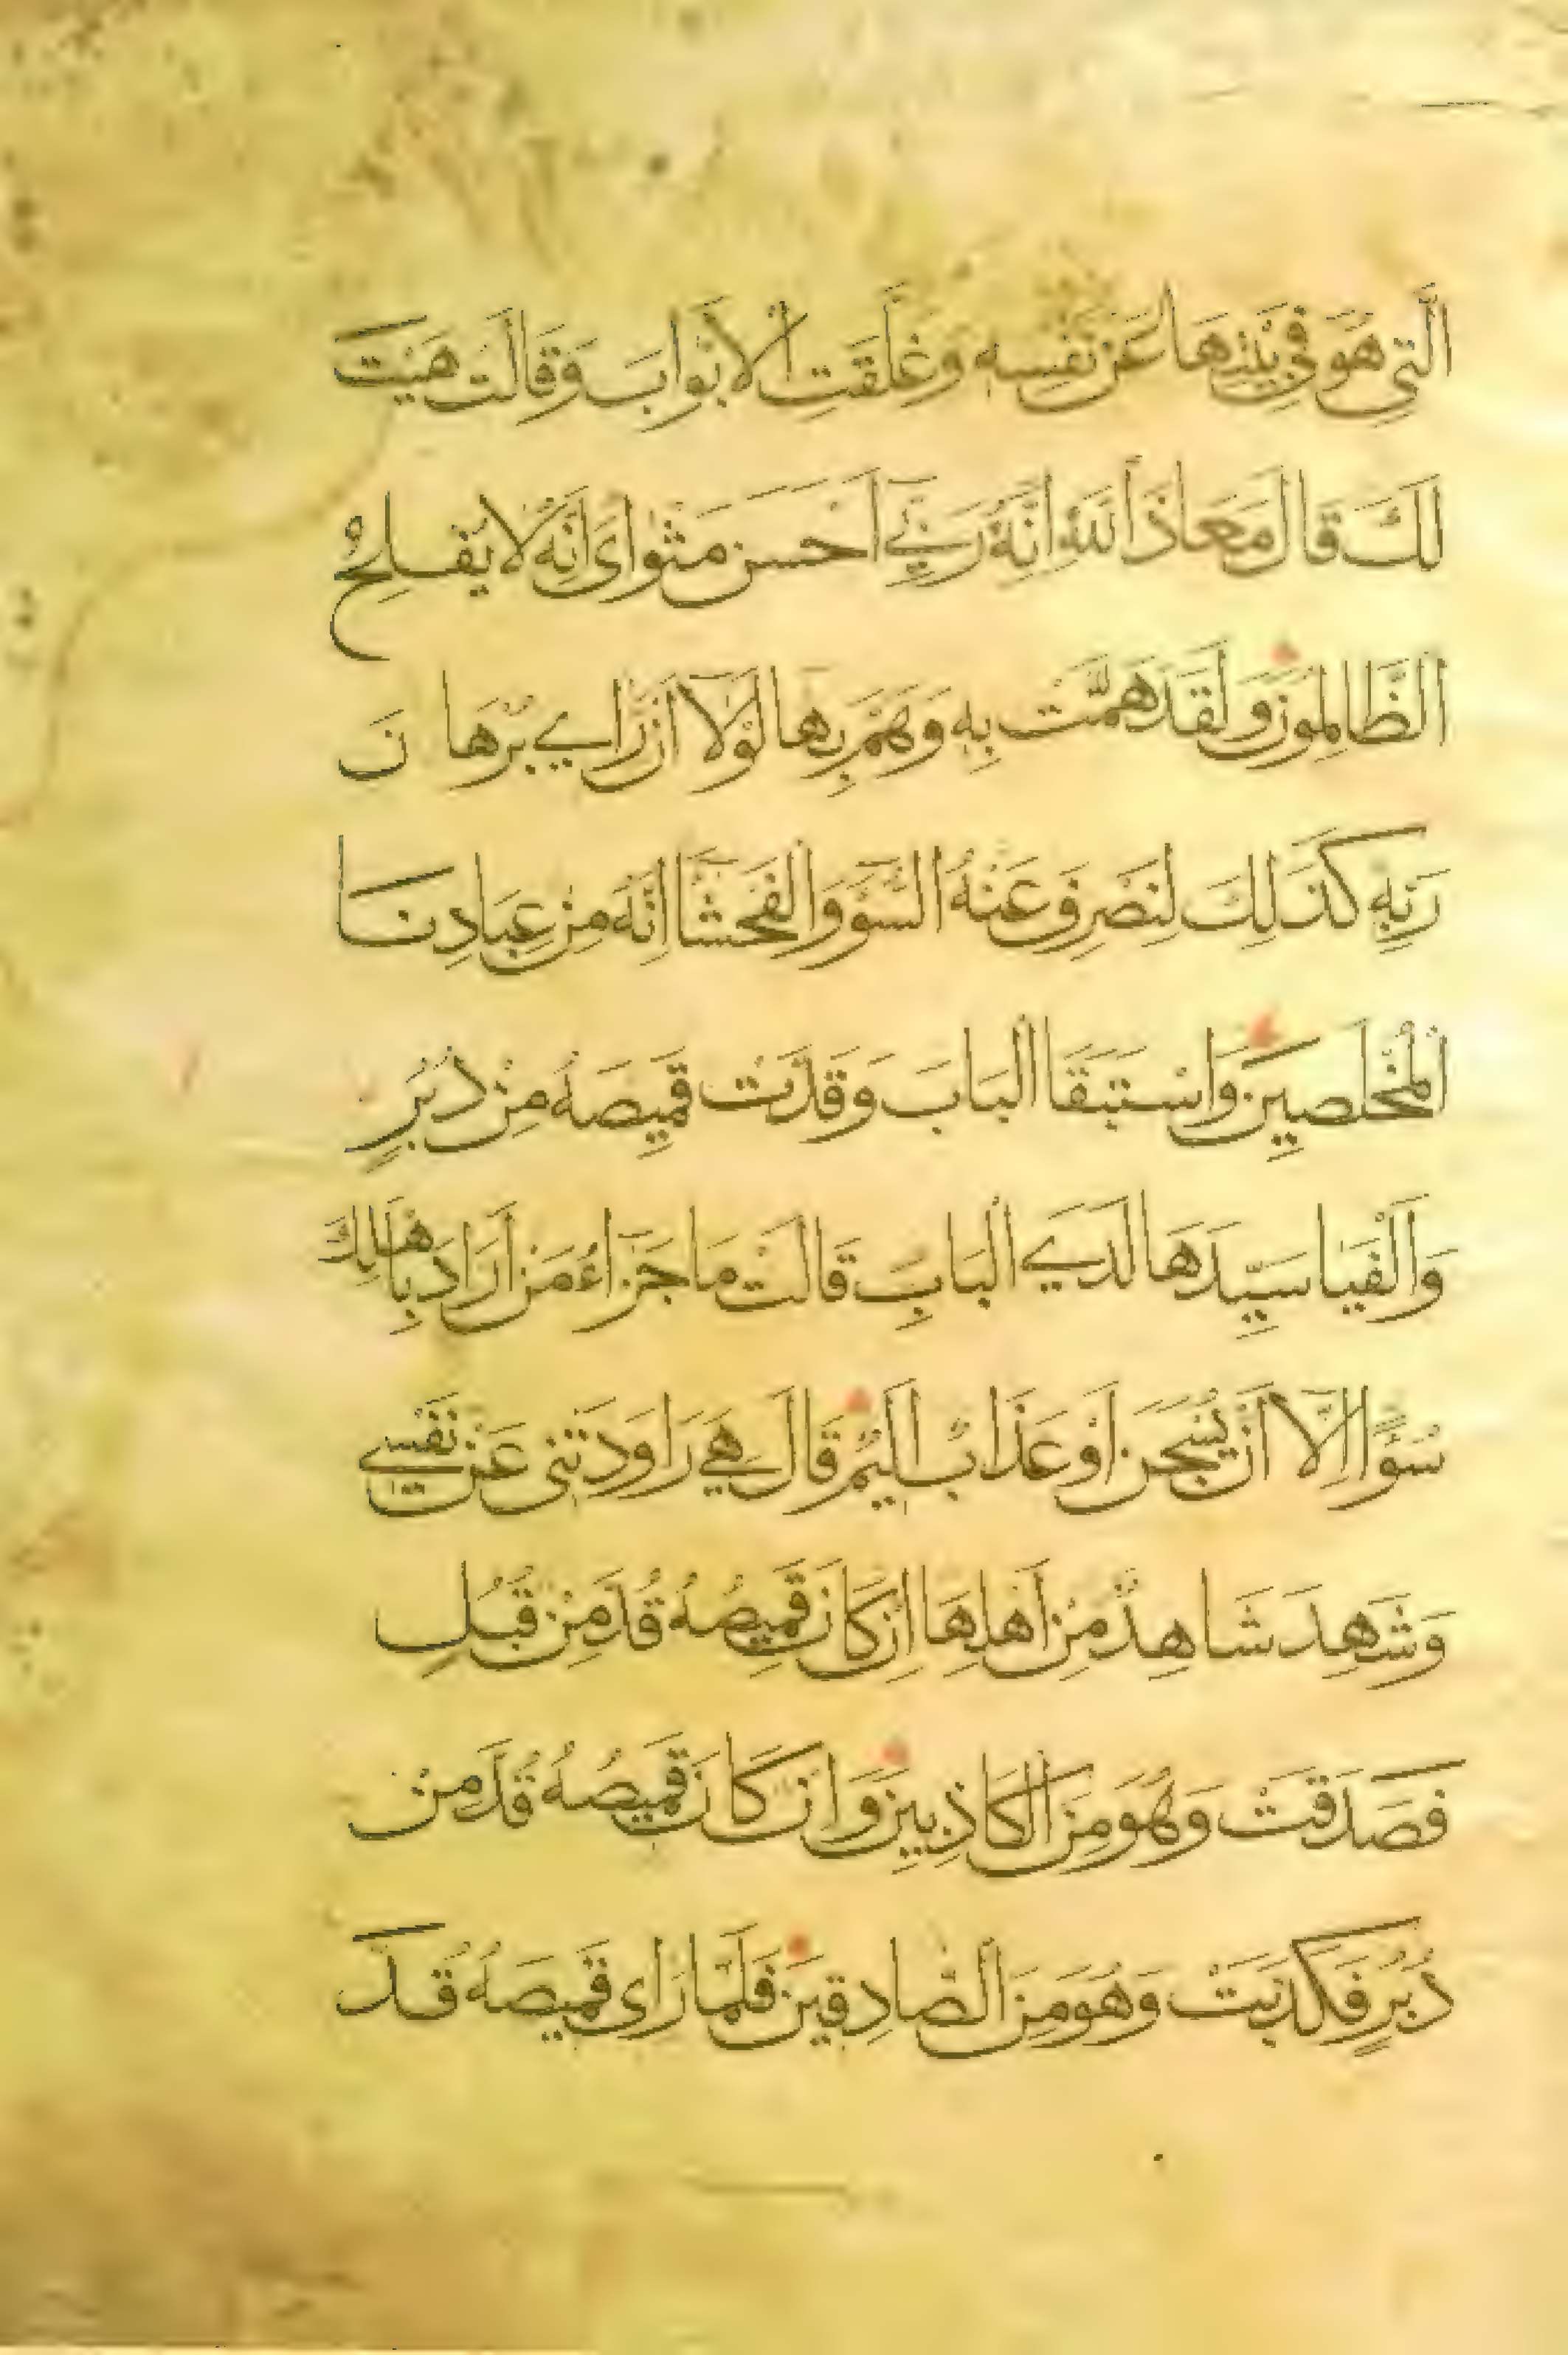 الَّتِي هُوَ فِي بَيْتِهَا عَنْ نَفْسِهِ وَغَلَّقَتِ الْأَبْوَابَ وَقَالَتْ هَيْتَ
لَكَ قَالَ مَعَاذَ اللّٰهِ اِنَّهُ رَبِّي اَحْسَنَ مَثْوَاىَ اِنَّهُ لَا يُفْلِحُ
الظَّالِمُونَ وَلَقَدْ هَمَّتْ بِهِ وَهَمَّ بِهَا لَوْلَا اَنْ رَاي بُرْهَا نَ
رَبِّهِ كَذَلِكَ لِنَصْرِفَ عَنْهُ السُّوَٓ وَالْفَحْشَآ اِنَّهُ مِنْ عِبَادِنَا
الْمُخْلَصِينَ وَاسْتَبَقَا الْبَابَ وَقَدَّتْ قَمِيصَهُ مِنْ دُبُرٍ
وَاَلْفَيَا سَيِّدَهَا لَدَي الْبَابِ قَالَتْ مَا جَزَٓاءُ مَنْ اَرَادَ بِاَهْلِكَ
سُوًٓا اِلَّآ اَنْ يُسْجَنَ اَوْ عَذَابٌ اَلِيمٌ قَالَ هِيَ رَاوَدَتْنِي عَنْ نَفْسِي
وَشَهِدَ شَاهِدٌ مِنْ اَهْلِهَا اِنْ كَانَ قَمِيصُهُ قُدَّ مِنْ قُبُلٍ
فَصَدَقَتْ وَهُوَ مِنَ الْكَاذِبِينَ وَاِنْ كَانَ قَمِيصُهُ قُدَّ مِنْ
دُبُرٍ فَكَذَبَتْ وَهُوَ مِنَ الصَّادِقِينَ فَلَمَّا رَاى قَمِيصَهُ قُدَّ